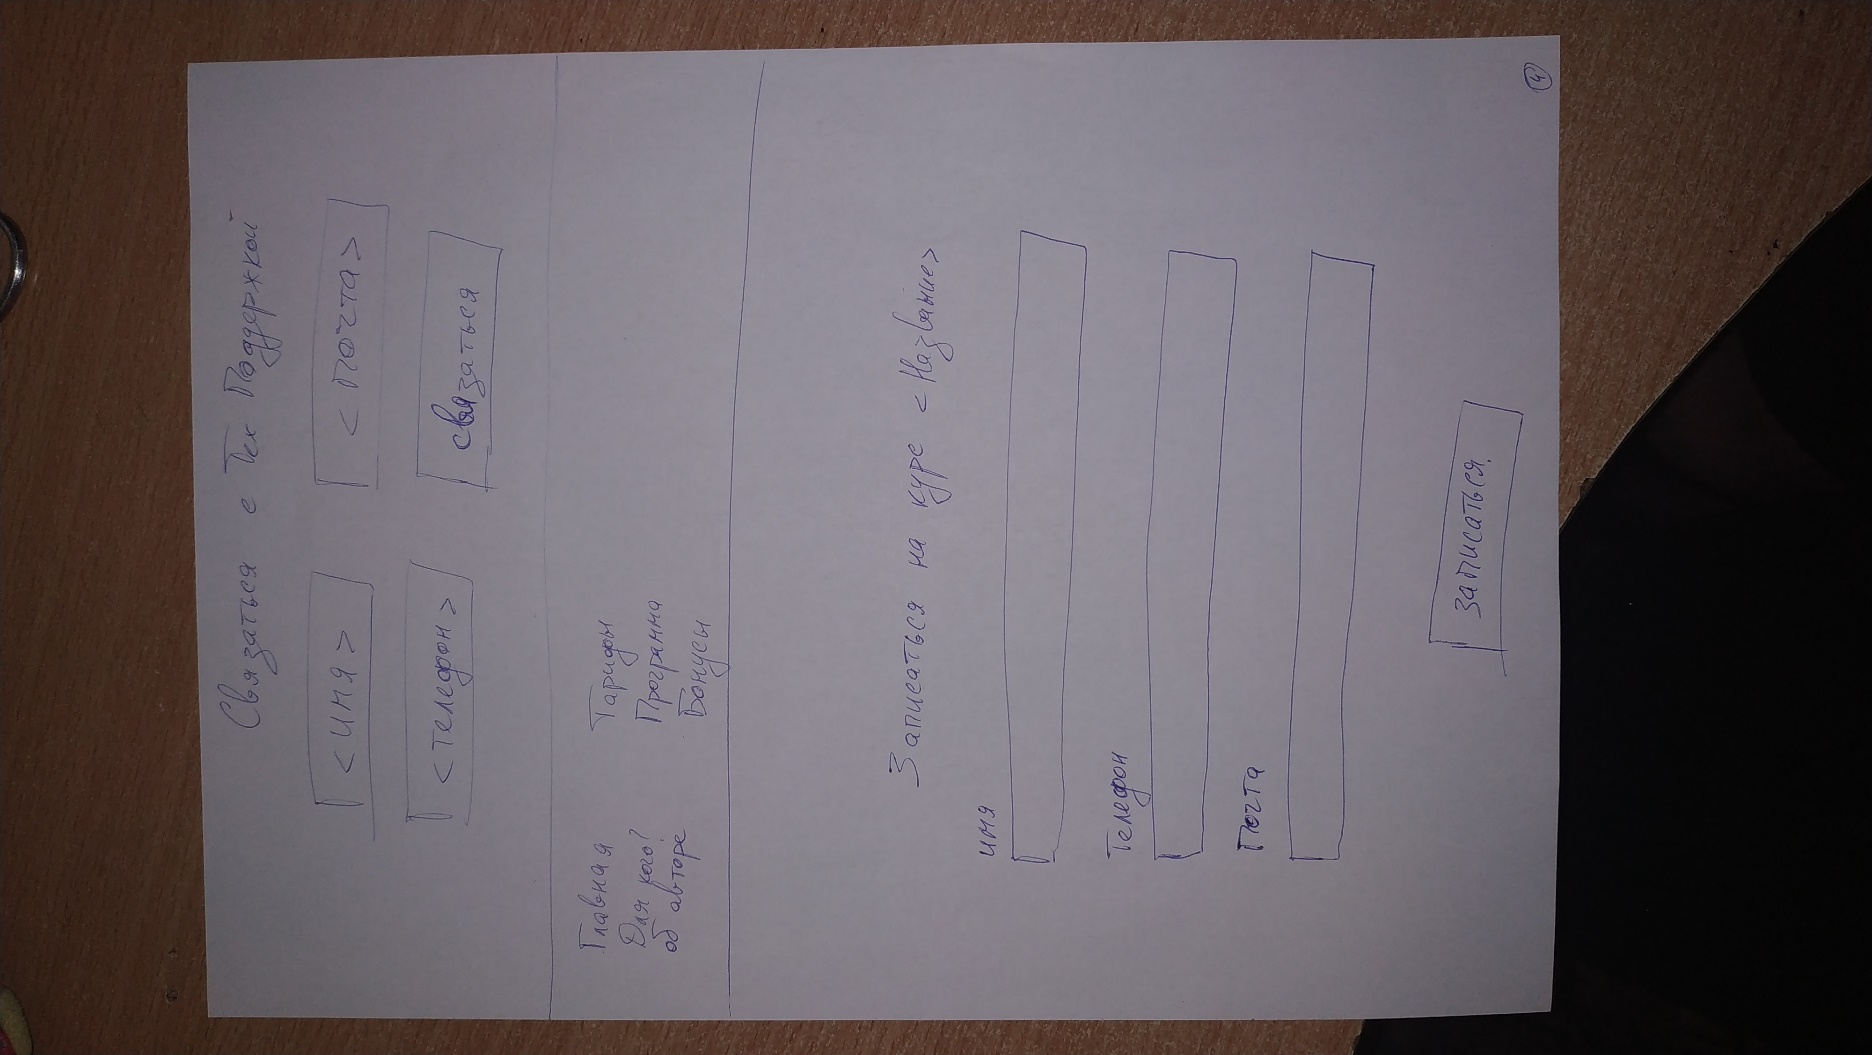 Связаться с Тех Поддержкой
<имя> <почта>
<телефон> связаться
Главная Тарифы
Для кого? Программа
об авторе Бонусы
Записаться на курс <Название>
имя
Телефон
Почта
Записаться
4